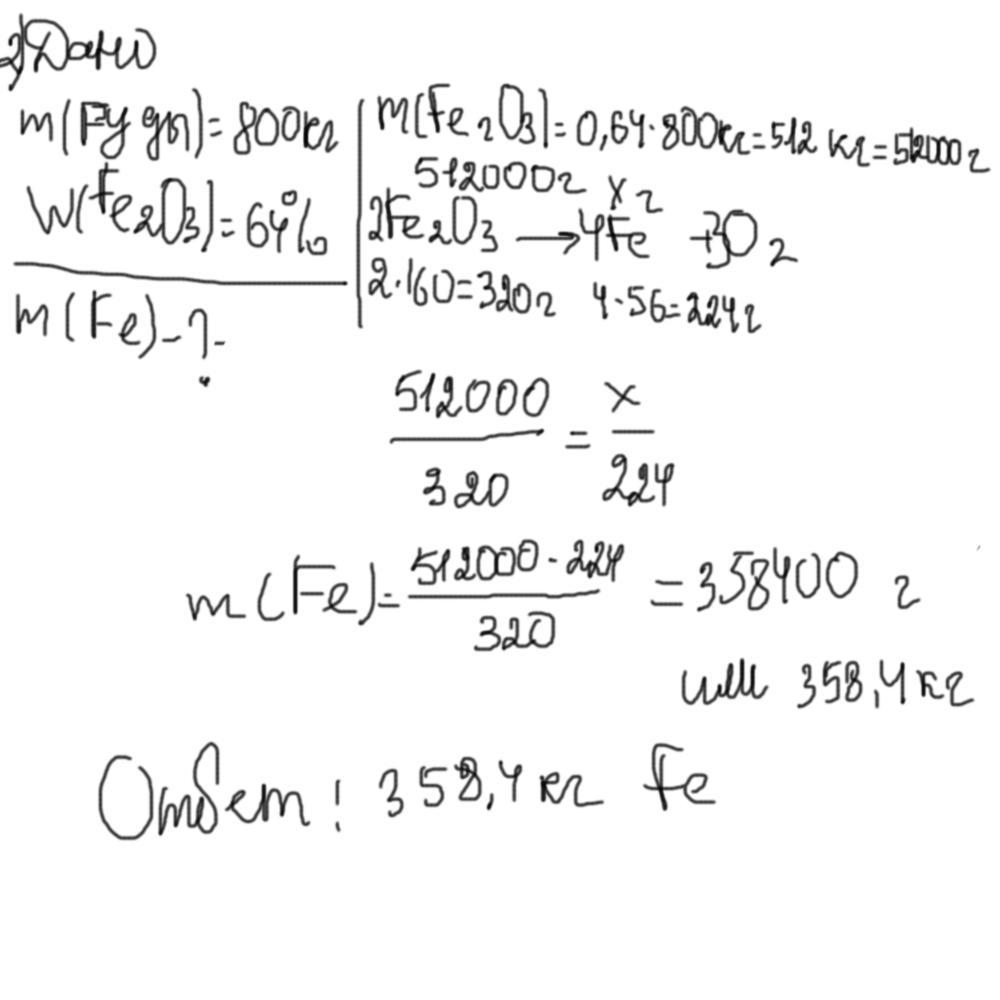 2) Дано
m(Fy gn) = 800кг
W(Fe2O3) = 64%
m(Fe) - ?
m(Fe2O3) = 0,64·800кг = 512 кг = 512000г
512000г x г
2Fe2O3 → 4Fe + 3O2
2·160=320г 4·56=224г
512000/320 = x/224
m(Fe) = 512000·224/320 = 358400 г
или 358,4 кг
Ответ: 358,4 кг Fe